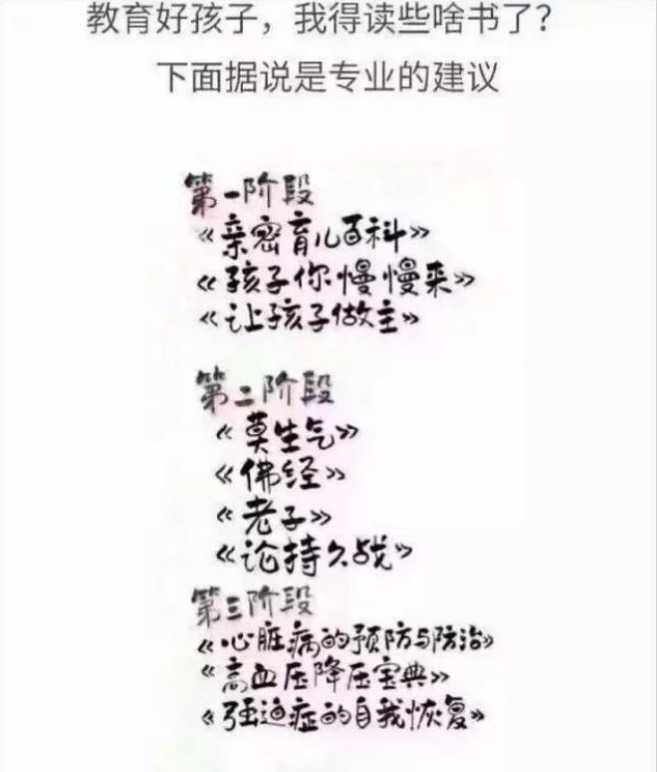 教育好孩子，我得读些啥书了？
下面据说是专业的建议
第一阶段
《亲密育儿百科》
《孩子你慢慢来》
《让孩子做主》
第二阶段
《莫生气》
《佛经》
《老子》
《论持久战》
第三阶段
《心脏病的预防与防治》
《高血压降压宝典》
《强迫症的自我恢复》